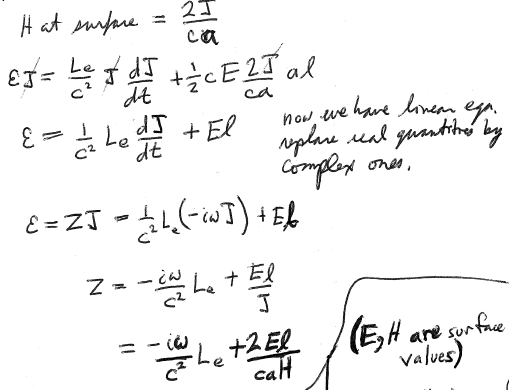 H at surface = 2J/ca
εJ = Le/c² J dJ/dt + 1/2 c E 2J/ca al
ε = 1/c² Le dJ/dt + El
now we have linear eqn.
replace real quantities by
complex ones.
ε = ZJ = 1/c² Le(-iωJ) + El
Z = -iω/c² Le + El/J
= -iω/c² Le + 2El/caH
(E, H are surface
values)